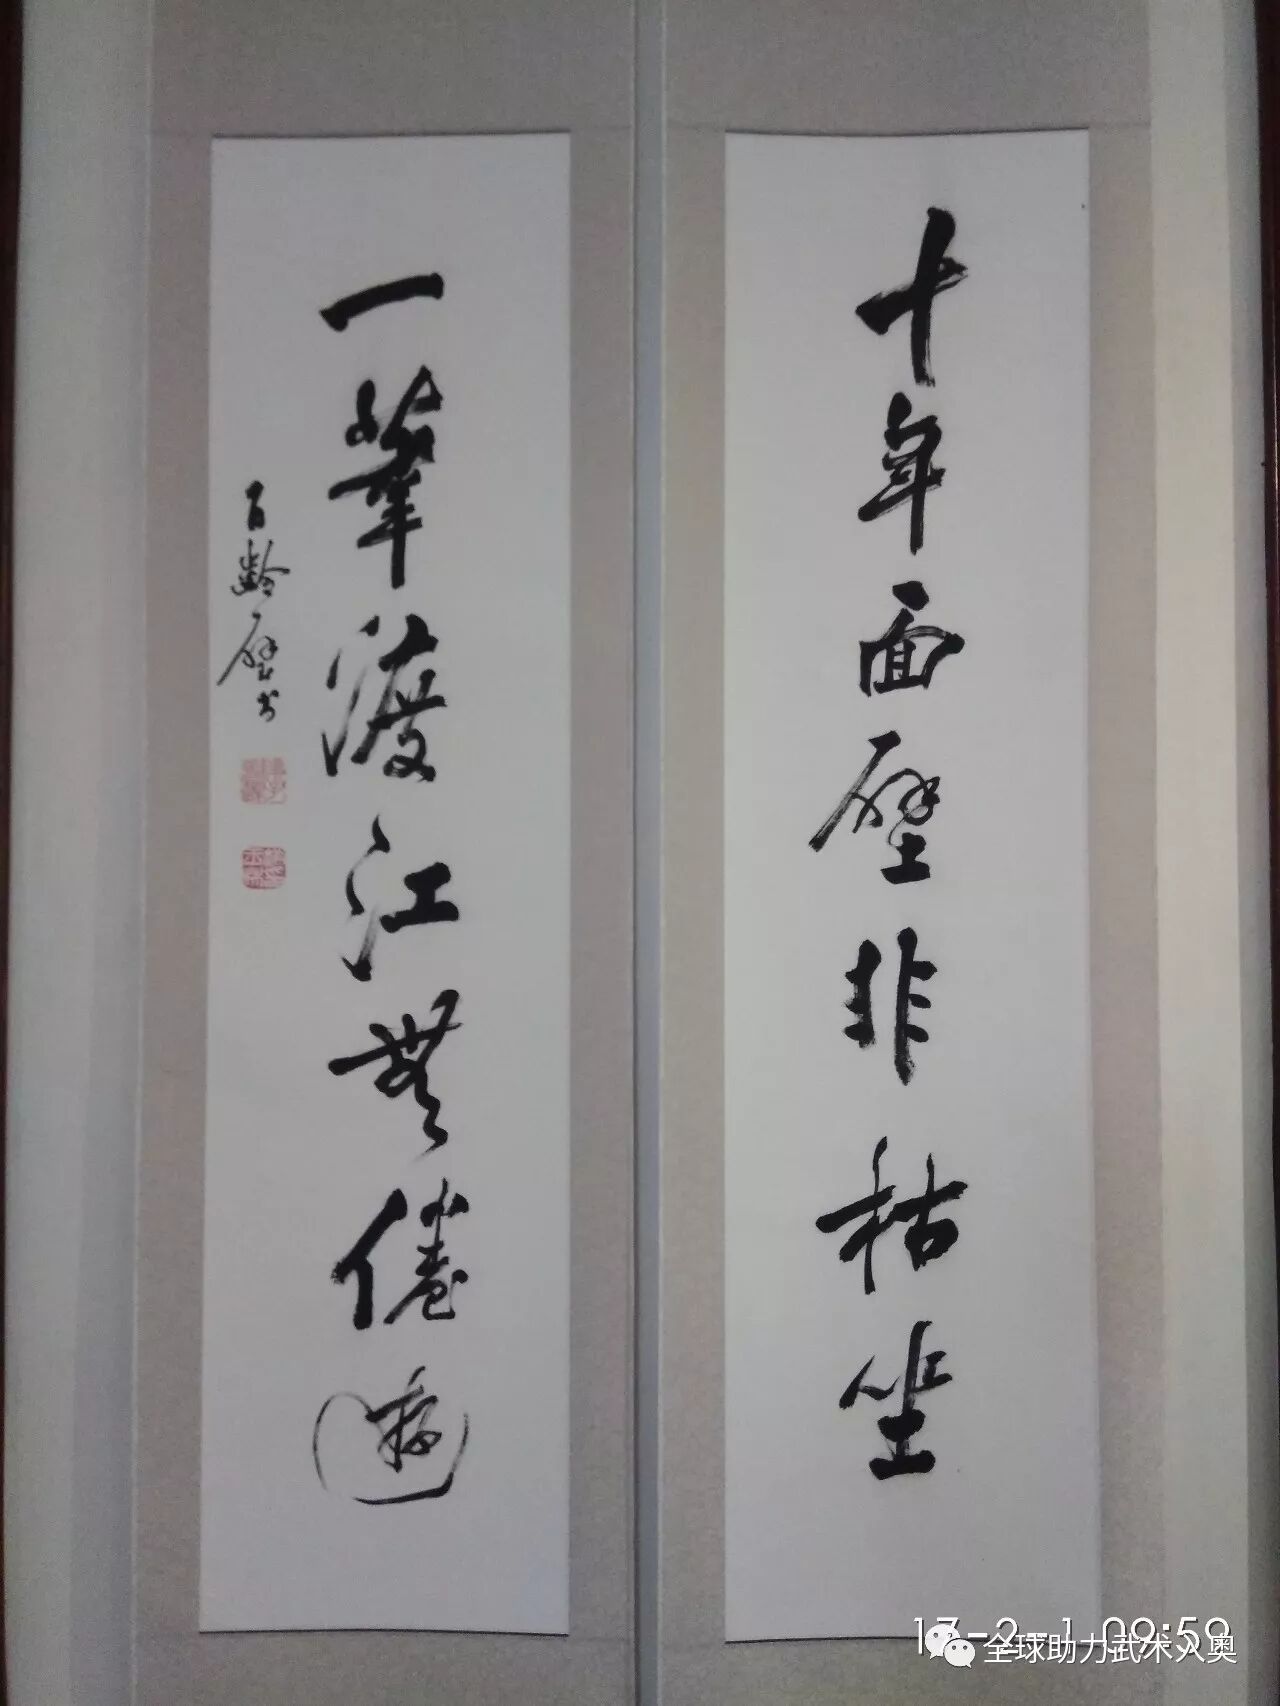 十年面壁非枯坐
一葦渡江無倦遊
百齡
17-2-1 09:59
全球助力武术入奥